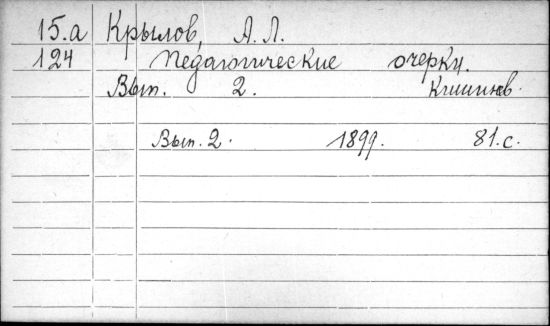 15.а Крылов, А. Л.
124 Педагогические очерки.
Вып. 2. Кишинев.
Вып. 2. 1899. 81. с.